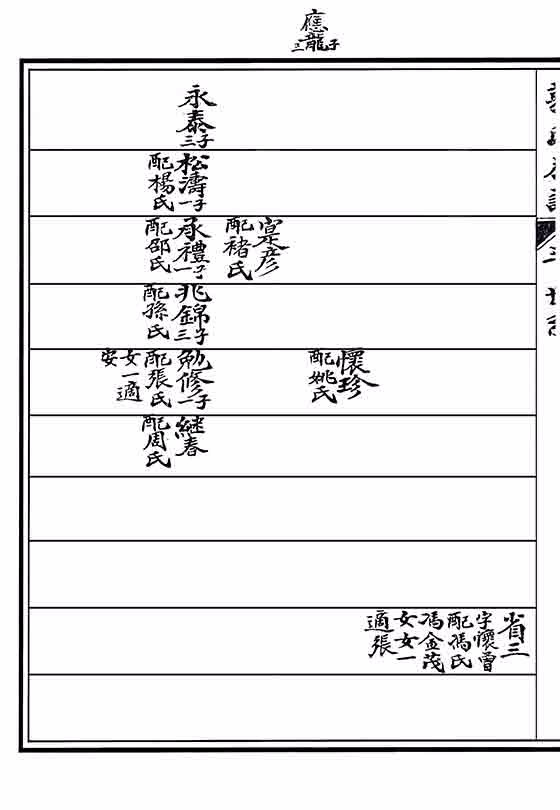 應龍三子
永泰三子
松濤一子
配楊氏
寔彦
配褚氏
承禮一子
配邵氏
兆錦三子
配孫氏
懷珍
配姚氏
勉修一子
配張氏
女一適
安
継春
配周氏
省三
字懷曾
配馮氏
馮金茂
女女一
適張